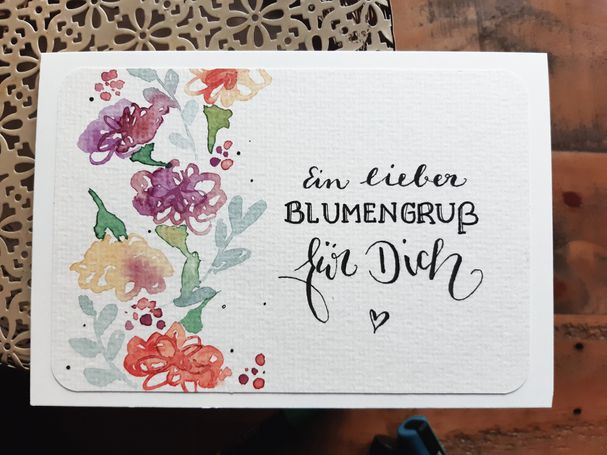 Ein lieber
BLUMENGRUß
für Dich